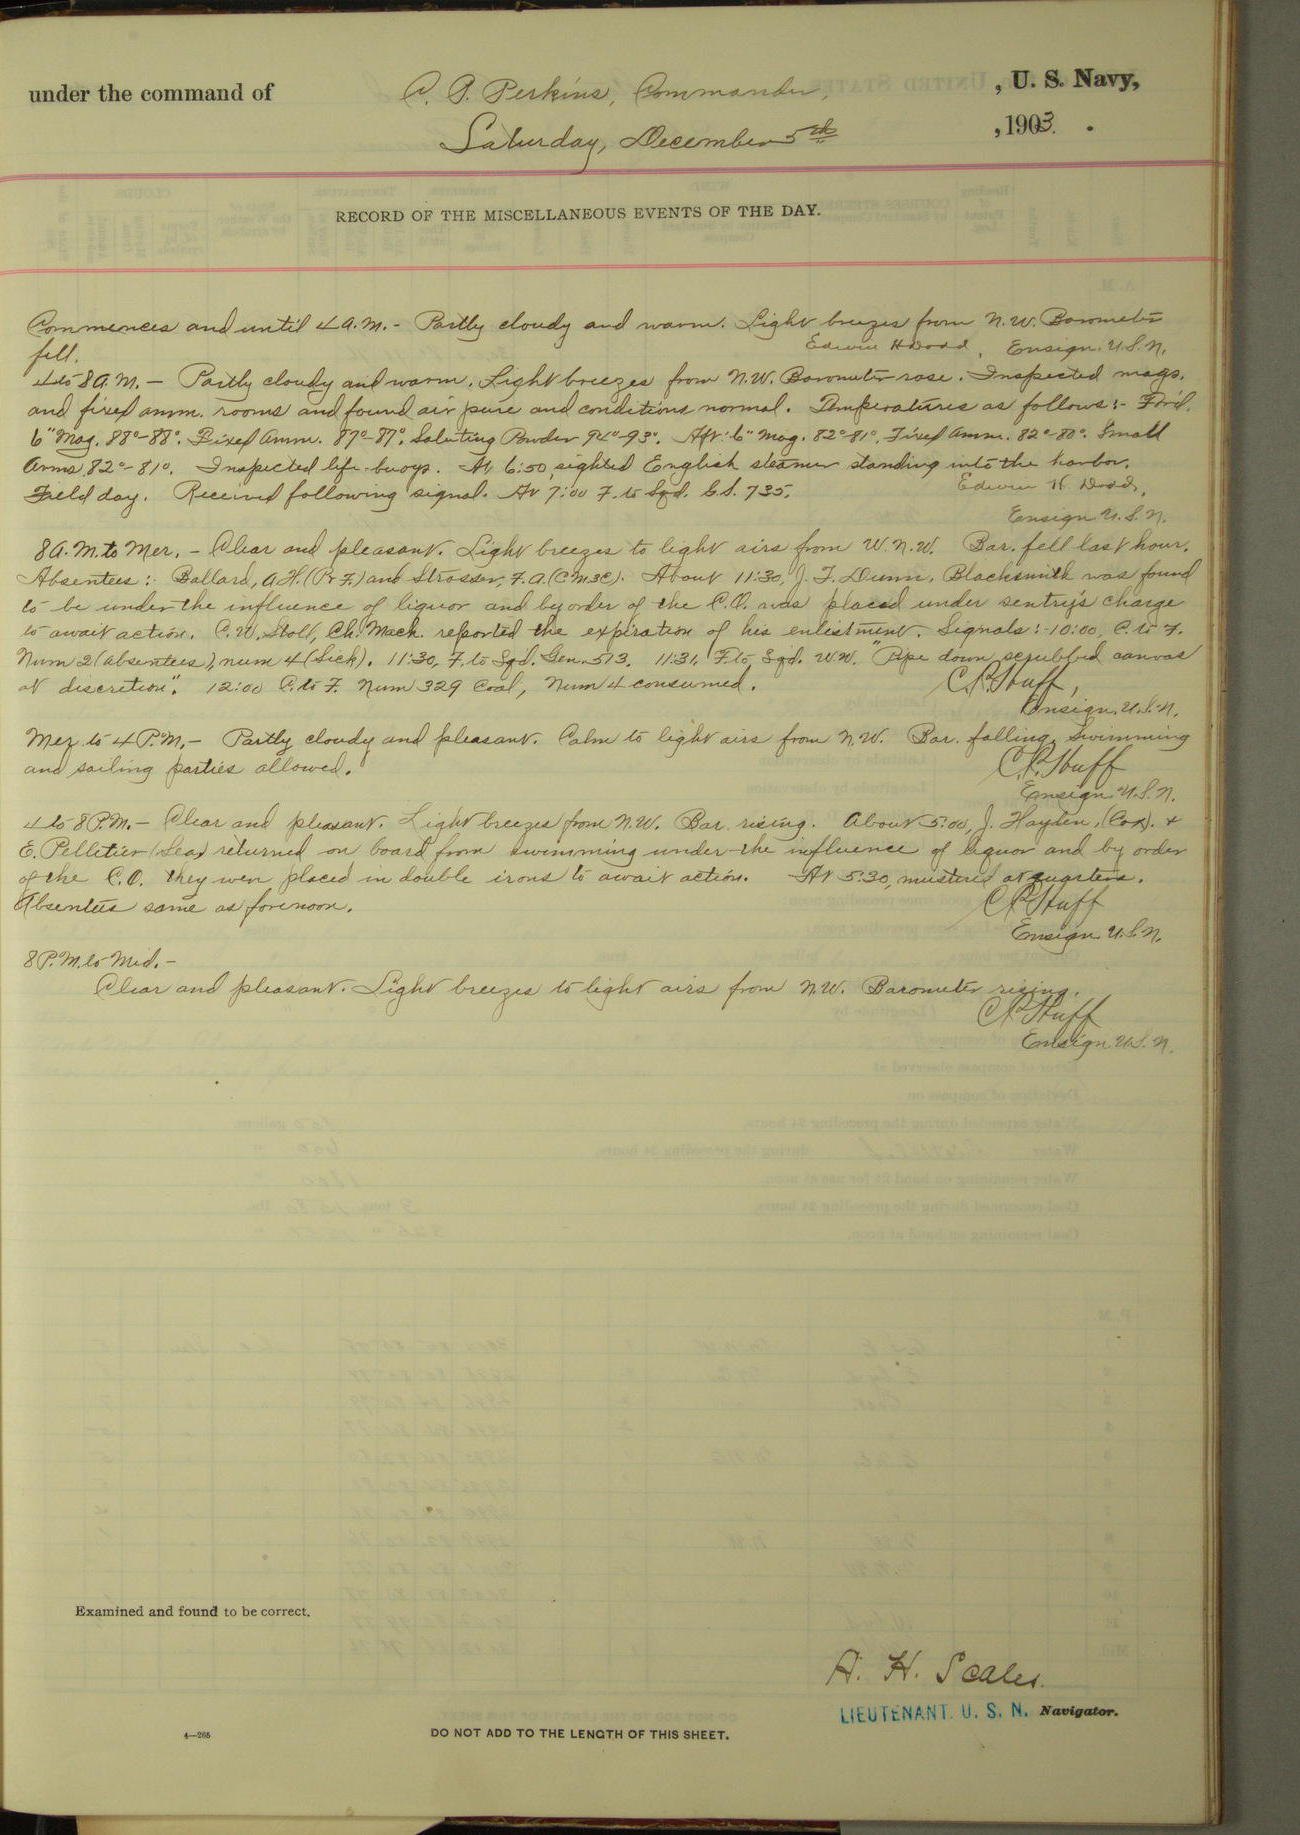 under the command of C. P. Perkins, Commander, , U. S. Navy,
Saturday, December 5th , 1903.
RECORD OF THE MISCELLANEOUS EVENTS OF THE DAY.
Commences and until 4 A.M. - Partly cloudy and warm. Light breezes from N.W. Barometer
fell. Edwin H Dodd, Ensign U.S.N.
4 to 8 A.M. - Partly cloudy and warm. Light breezes from N.W. Barometer rose. Inspected mags.
and fixed amm. rooms and found air pure and conditions normal. Temperatures as follows:- Fwd.
6" Mag. 88°-88°. Fixed Amm. 87°-87°. Saluting Powder 94°-93°. Aft: 6" Mag. 82°-81°. Fixed Amm. 82°-80°. Small
Arms 82°-81°. Inspected life-buoys. At 6:50, sighted English steamer standing into the harbor.
Field day. Received following signal. At 7:00 F. to Sqd. G.S. 735.
Edwin H. Dodd,
Ensign U.S.N.
8 A.M. to Mer. - Clear and pleasant. Light breezes to light airs from W.N.W. Bar. fell last hour.
Absentees: Ballard, A.H. (Pr F.) and Strosser, F.A. (C.M.3C). About 11:30, J. F. Dunn, Blacksmith was found
to be under the influence of liquor and by order of the C.O. was placed under sentry's charge
to await action. C.W. Stoll, Ch. Mach. reported the expiration of his enlistment. Signals:- 10:00, C. to F.
Num 2 (absentees), num 4 (Sick). 11:30, F. to Sqd. Gen. 513. 11:31, F. to Sqd. W.W. "Pipe down scrubbed canvas
at discretion". 12:00 C. to F. Num 329 Coal, Num 4 consumed.
C.P. Huff,
Ensign, U.S.N.
Mer. to 4 P.M. - Partly cloudy and pleasant. Calm to light airs from N.W. Bar. falling. Swimming
and sailing parties allowed.
C.P. Huff
Ensign U.S.N.
4 to 8 P.M. - Clear and pleasant. Light breezes from N.W. Bar. rising. About 5:00, J. Hayden, (Cox). &
E. Pelletier (Sea) returned on board from swimming under the influence of liquor and by order
of the C.O. they were placed in double irons to await action. At 5:30, mustered at quarters.
Absentees same as forenoon.
C.P. Huff
Ensign U.S.N.
8 P.M. to Mid. -
Clear and pleasant. Light breezes to light airs from N.W. Barometer rising.
C.P. Huff
Ensign U.S.N.
Examined and found to be correct.
A. H. Scales.
LIEUTENANT. U. S. N. Navigator.
4—265
DO NOT ADD TO THE LENGTH OF THIS SHEET.